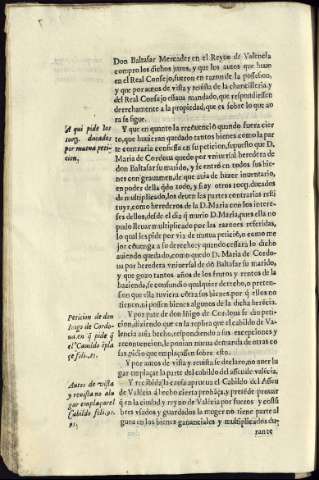 Don Baltasar Mercader en el Reyno de Valencia
compro los dichos juros, y que los autos que huuo
en el Real Consejo, fueron en razon de la possesion,
y que por autos de vista y reuista de la chancilleria, y
del Real Consejo estaua mandado, que respondiessen
derechamente a la propiedad, que es sobre lo que ao
ra se sigue.
A qui pide los
ducados
por mutua peti-
cion.
Y que en quanto la recõuencio quando fuera cier
to, que huuieran quedado tantos bienes como la par
te contraria confiessa en su peticion, supuesto que D.
Maria de Cordoua quedo por vniuersal heredera de
don Baltasar su marido, y se entrò en todos sus bie
nes con grauamen, de que auia de hazer inuentario,
en poder della 2000, y
de multiplicado, los deuen las partes contrarias resti
tuyr, como herederos de la D. Maria con los interes
ses dellos, desde el dia q̃ murio D. Maria, pues ella no
pudo lleuar multiplicado por las razones referidas,
lo qual les pide por via de mutua peticiõ, o como me
jor cõuenga a su derecho: y quando cessara lo dicho
auiendo quedado, como quedo D. Maria de Cordo-
ua por heredera vniuersal de dõ Baltasar su marido,
y que gozo tantos años de los frutos y rentos de la
hazienda, se confundio qualquier derecho, o preten-
sion que ella tuuiera cõtra sus bienes por q̃ ellos no
tienen, ni possen bienes algunos de la dicha herēcia.
Peticion de don
Iñigo de Cordo-
ua, en q̃ pide q̃
el Cauildo
se fol. 21.
Y por parte de don Iñigo de Cordoua se dio peti-
cion, diziendo que en la replica que el cabildo de Va-
lencia auia hecho, respondiendo a sus excepciones y
reconuencion, le ponian nueua demanda de otras co
sas, pidio que emplaçassen sobre esto.
Autos de vista
y reuista no
lugar emplaçar el
Cabildo fol. 91.
91.
Y por autos de vista y reuista se declaro, no auer lu
gar emplaçar la parte del cabildo del assiu de valēcia,
Y recibida la causa a prueua el Cabildo del Asseu
de Valēcia a hecho cierta probāça, y presēde prouar
q̃ en la ciudad y reyno de Valēcia por fueros y costũ
bres vsados y guardados la muger no tiene parte al
guna en los bienes gananciales y multiplicados du-
rante